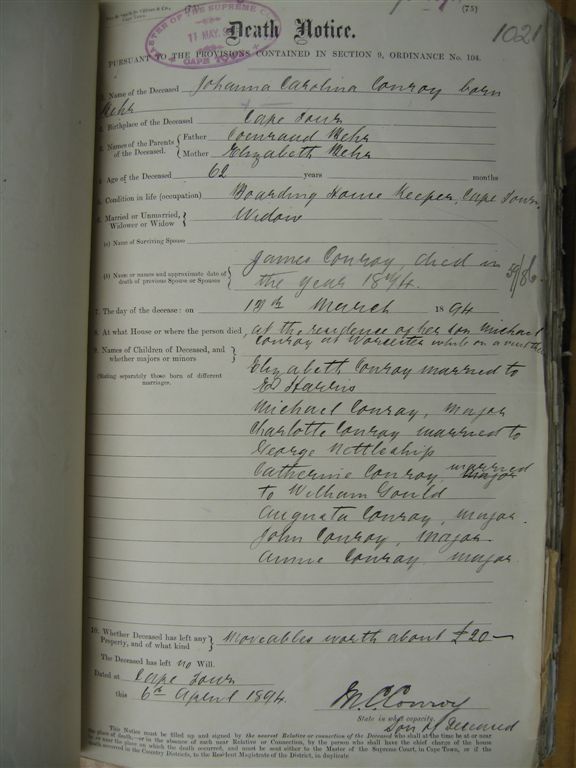 (75)
1021
MASTER OF THE SUPREME CO
11 MAY
CAPE TOWN
Death Notice.
PURSUANT TO THE PROVISIONS CONTAINED IN SECTION 9, ORDINANCE No. 104.
1. Name of the Deceased Johanna Carolina Conroy born
Behr
2. Birthplace of the Deceased Cape Town
3. Names of the Parents of the Deceased. { Father Coenraad Behr
Mother Elizabeth Behr
4. Age of the Deceased 62 years months
5. Condition in life (occupation) Boarding House Keeper, Cape Town.
6. Married or Unmarried, Widower or Widow } Widow
(a) Name of Surviving Spouse
(b) Name or names and approximate date of death of previous Spouse or Spouses } James Conroy died in
the year 1874.
7. The day of the decease: on 12th March 1894
8. At what House or where the person died, at the residence of her son Michael
Conroy at Worcester while on a visit there
9. Names of Children of Deceased, and whether majors or minors }
(Stating separately those born of different marriages.
Elizabeth Conroy married to
Ed Harris
Michael Conroy, Major
Charlotte Conroy married to
George Nettleship
Catherine Conroy, married
to William Gould
Augusta Conroy, major.
John Conroy, Major
Annie Conroy major
10. Whether Deceased has left any Property, and of what kind } Moveables worth about £20—
The Deceased has left no Will.
Dated at Cape Town
this 6th April 1894.
M C Conroy
State in what capacity.
Son of Deceased
This Notice must be filled up and signed by the nearest Relative or connection of the Deceased who shall at the time be at or near
the place of death,—or in the absence of such near Relative or Connection, by the person who shall have the chief charge of the house
in or near the place on which the death occurred, and must be sent either to the Master of the Supreme Court, in Cape Town, or if the
death occurred in the Country Districts, to the Resident Magistrate of the District, in duplicate